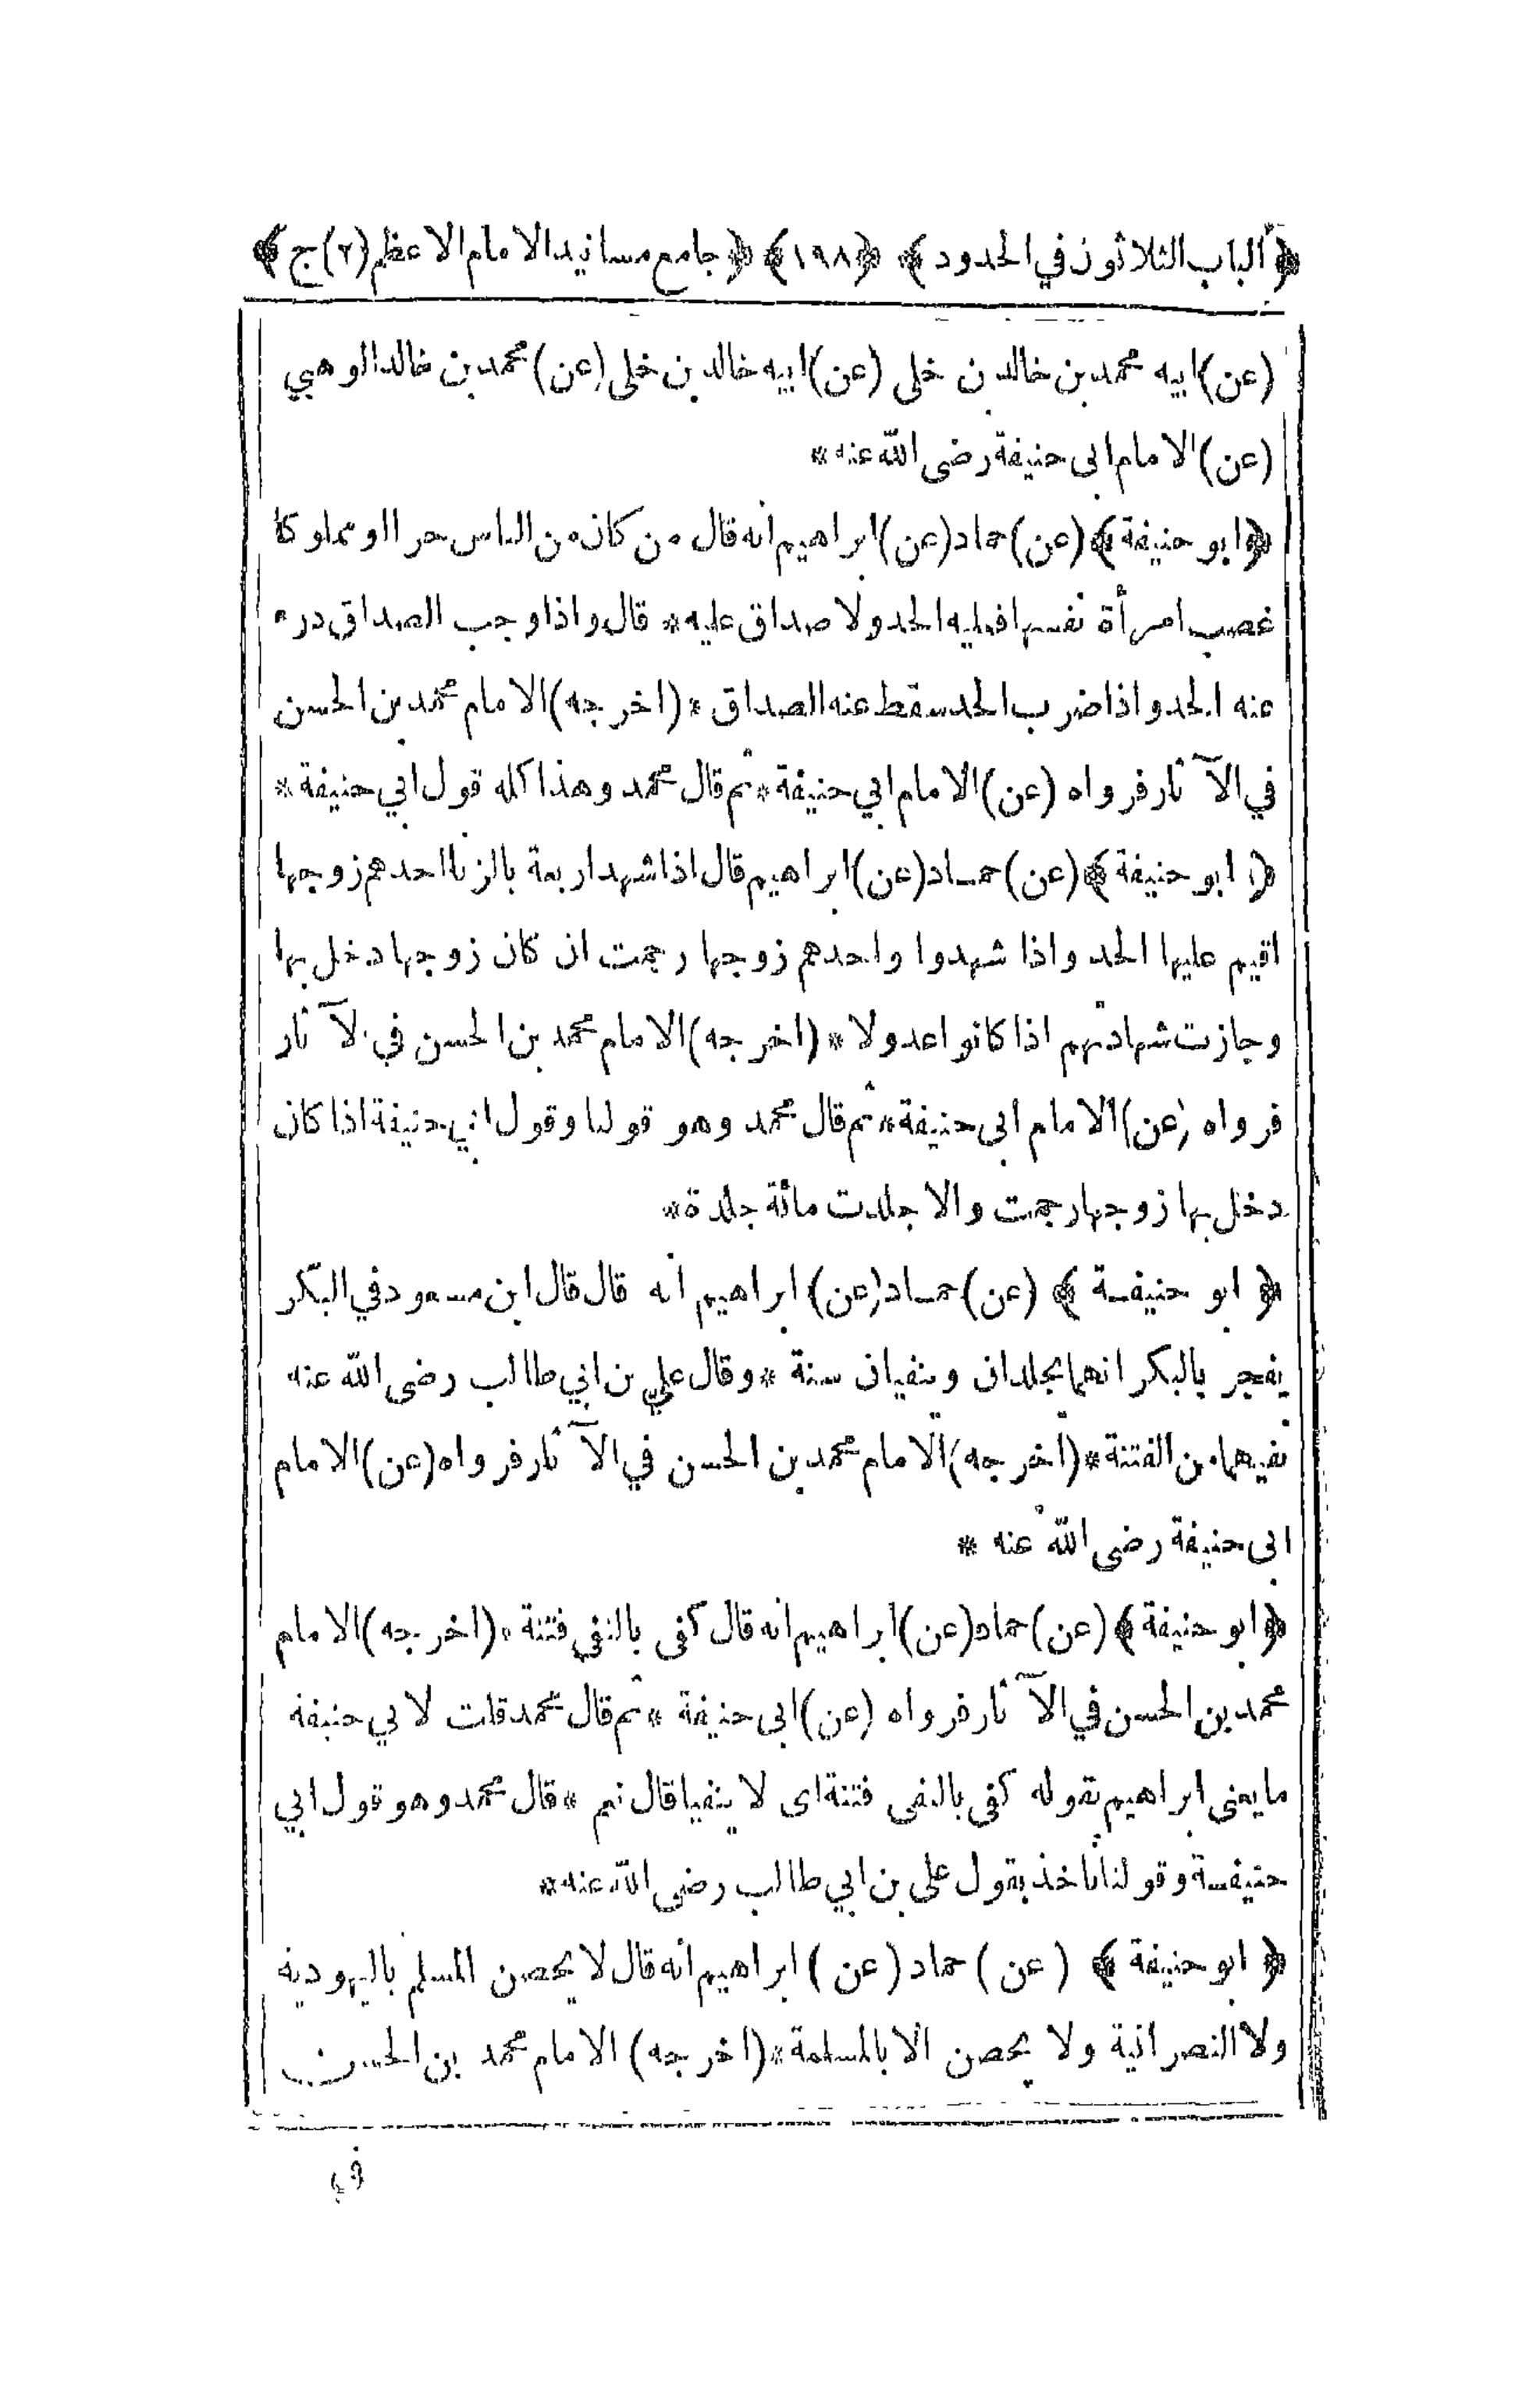 ﴿الباب الثلاثون في الحدود﴾ ﴿١٩٨﴾ ﴿جامع مسانيد الامام الاعظم (٢) ج﴾
(عن) ابيه محمد بن خالد بن خلى (عن) ابيه خالد بن خلى (عن) محمد بن خالد الوهبي
(عن) الامام ابى حنيفة رضى الله عنه *
﴿ابو حنيفة﴾ (عن) حماد (عن) ابراهيم انه قال من كان من الناس حرا او مملوكا
غصب امرأة نفسها فعليه الحد ولا صداق عليه * قال واذا وجب الصداق درء
عنه الحد واذا ضرب الحد سقط عنه الصداق * (اخرجه) الامام محمد بن الحسن
في الآثار فرواه (عن) الامام ابي حنيفة * ثم قال محمد وهذا كله قول ابي حنيفة *
﴿ابو حنيفة﴾ (عن) حماد (عن) ابراهيم قال اذا شهد اربعة بالزنا احدهم زوجها
اقيم عليها الحد واذا شهدوا واحدهم زوجها رجمت ان كان زوجها دخل بها
وجازت شهادتهم اذا كانوا عدولا * (اخرجه) الامام محمد بن الحسن في الآثار
فرواه (عن) الامام ابى حنيفة * ثم قال محمد وهو قولنا وقول ابي حنيفة اذا كان
دخل بها زوجها رجمت والا جلدت مائة جلدة *
﴿ابو حنيفة﴾ (عن) حماد (عن) ابراهيم انه قال قال ابن مسعود في البكر
يفجر بالبكر انهما يجلدان وينفيان سنة * وقال علي بن ابي طالب رضى الله عنه
نفيهما من الفتنة * (اخرجه) الامام محمد بن الحسن في الآثار فرواه (عن) الامام
ابى حنيفة رضى الله عنه *
﴿ابو حنيفة﴾ (عن) حماد (عن) ابراهيم انه قال كفى بالنفى فتنة * (اخرجه) الامام
محمد بن الحسن في الآثار فرواه (عن) ابى حنيفة * ثم قال محمد قلت لابي حنيفة
ما يعنى ابراهيم بقوله كفى بالنفى فتنة اى لا ينفيا قال نعم * قال محمد وهو قول ابي
حنيفة وقولنا ناخذ بقول على بن ابي طالب رضى الله عنه *
﴿ابو حنيفة﴾ (عن) حماد (عن) ابراهيم انه قال لا يحصن المسلم باليهودية
ولا النصرانية ولا يحصن الا بالمسلمة * (اخرجه) الامام محمد بن الحسن
في